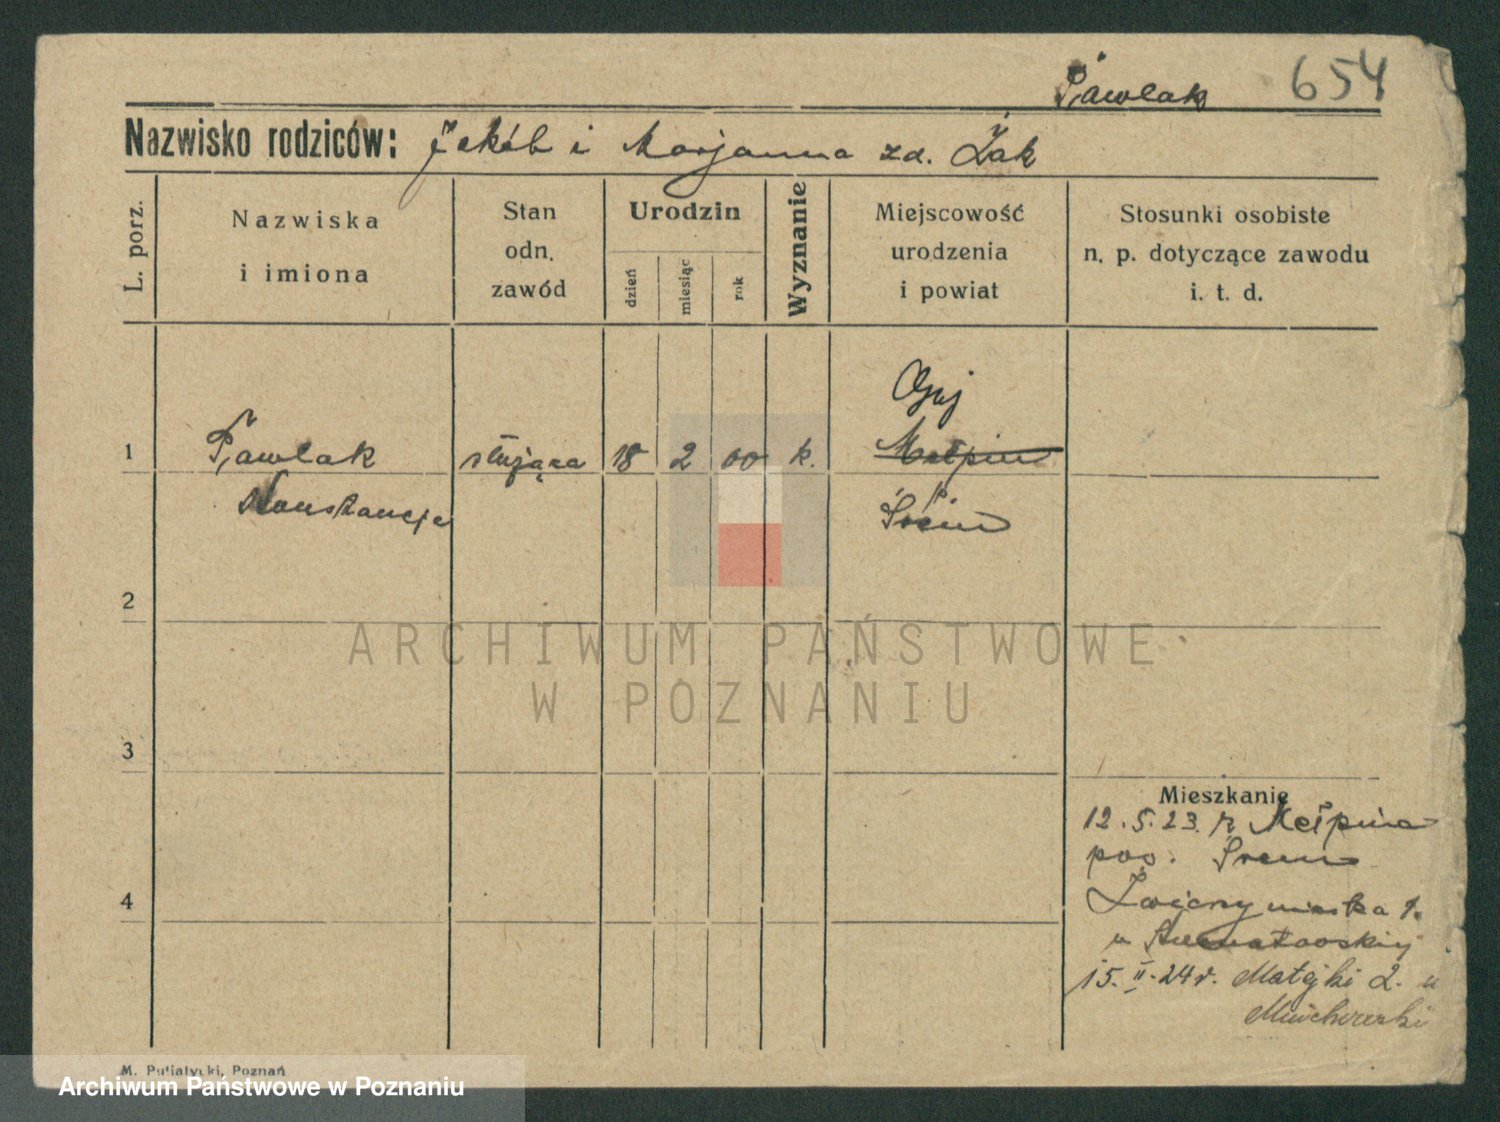 Pawlak 654
Nazwisko rodziców: Jakób i Marjanna zd. Żak
L. porz.
Nazwiska
i imiona
Stan
odn.
zawód
Urodzin
dzień
miesiąc
rok
Wyznanie
Miejscowość
urodzenia
i powiat
Stosunki osobiste
n. p. dotyczące zawodu
i. t. d.
1 Pawlak służąca 18 2 00 k. Mełpin
Konstancja
Śrem
2
3
4
ARCHIWUM PAŃSTWOWE
W POZNANIU
Mieszkanie
12.5.23. z Mełpina
pow. Śrem
u
15.II.24r. Matejki 2. u
M. Putiatycki, Poznań
Archiwum Państwowe w Poznaniu